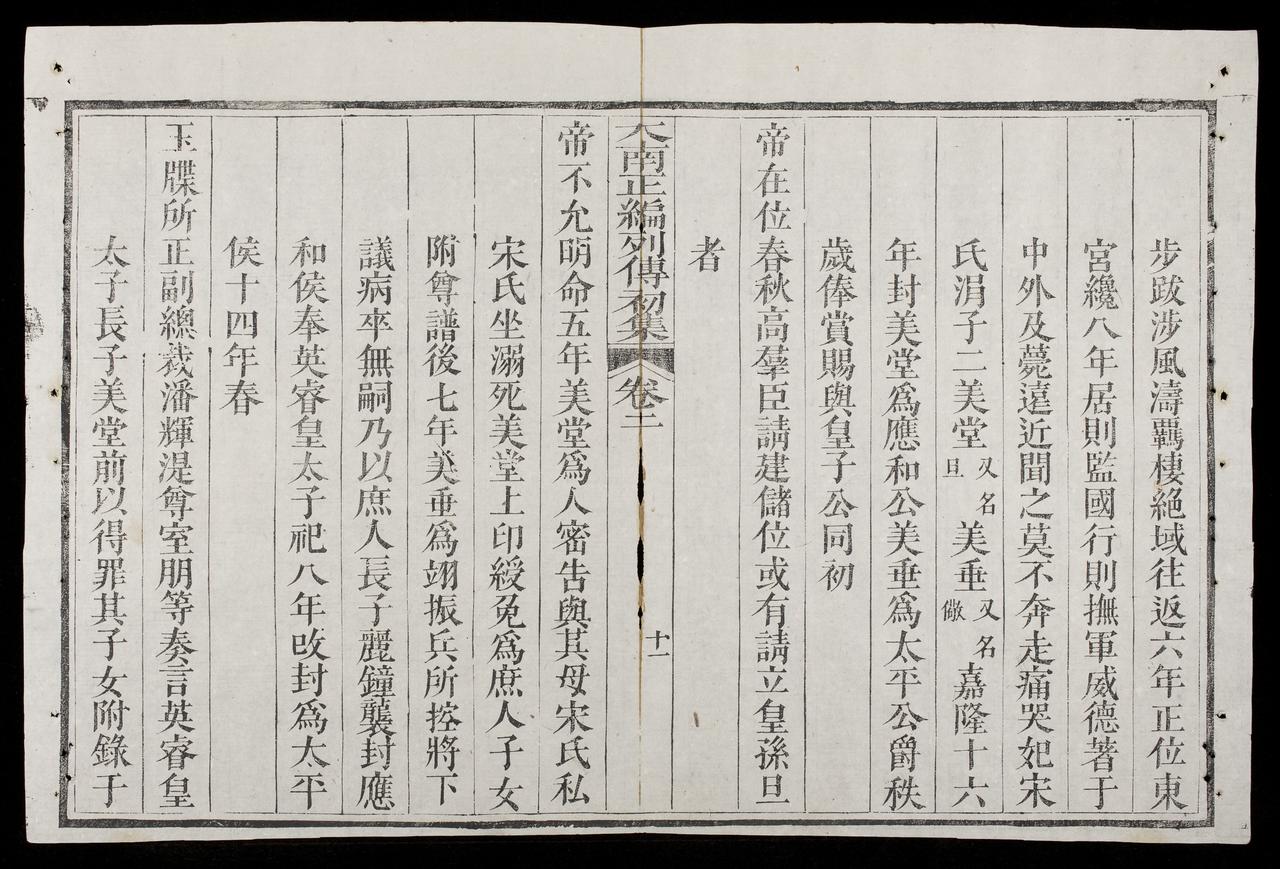 步跋涉風濤羈棲絶域往返六年正位東
宮纔八年居則監國行則撫軍威德著于
中外及薨遠近聞之莫不奔走痛哭妃宋
氏涓子二美堂又名旦美垂又名儆嘉隆十六
年封美堂爲應和公美垂爲太平公爵秩
歲俸賞賜與皇子公同初
帝在位春秋高羣臣請建儲位或有請立皇孫旦
者
大南正編列傳初集 卷二 十一
帝不允明命五年美堂爲人密告與其母宋氏私
宋氏坐溺死美堂上印綬免爲庶人子女
附尊譜後七年美垂爲翊振兵所控將下
議病卒無嗣乃以庶人長子麗鐘襲封應
和侯奉英睿皇太子祀八年改封爲太平
侯十四年春
玉牒所正副總裁潘輝湜尊室朋等奏言英睿皇
太子長子美堂前以得罪其子女附錄于